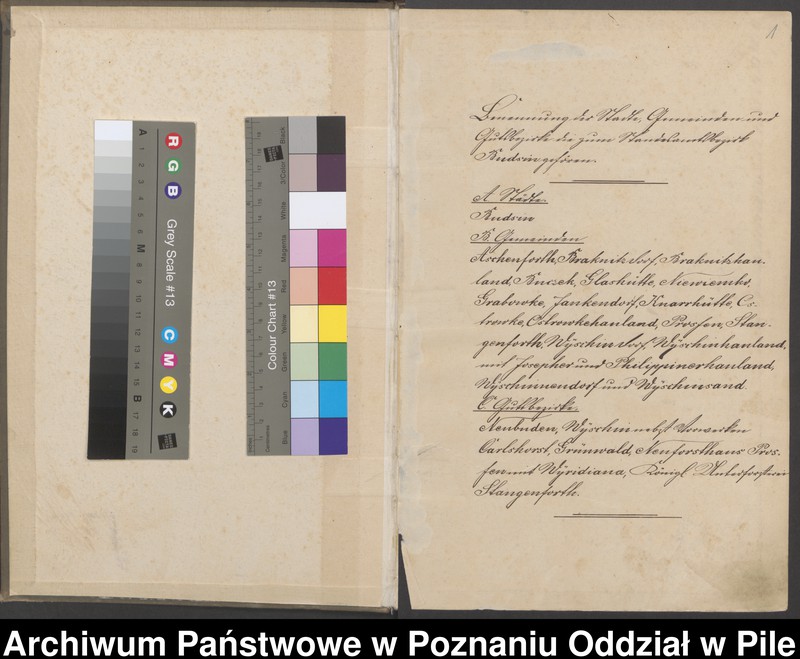 A 1 2 3 4 5 6 M 8 9 10 11 12 13 14 15 B 17 18 19
R G B
Grey Scale #13
C M Y K
Colour Chart #13
Blue Cyan Green Yellow Red Magenta White 3/Color Black
1
Benennung der Stadt, Gemeinden und
Gutsbezirke die zum Standesamtsbezirk
Budsin gehören.
A. Städte.
Budsin
B. Gemeinden
Aschenforth, Braknitz dorf, Braknitzhau-
land, Glashütte, Niewiemko,
Grabowke, Jankendorf, Knarrhütte, Os-
trowke, Ostrowkehauland, Prossen, Stan-
genforth, Wyschin dorf, Wyschinhauland,
mit Josepher und Philippinerhauland,
Wyschinnendorf und Wyschensand.
C. Gutsbezirke.
Neubuden, Wyschin nebst Vorwerken
Carlshorst, Grünwald, Neuforsthaus Pros-
sen mit Wyridiana, Königl. Unterforsterei
Stangenforth.
Archiwum Państwowe w Poznaniu Oddział w Pile